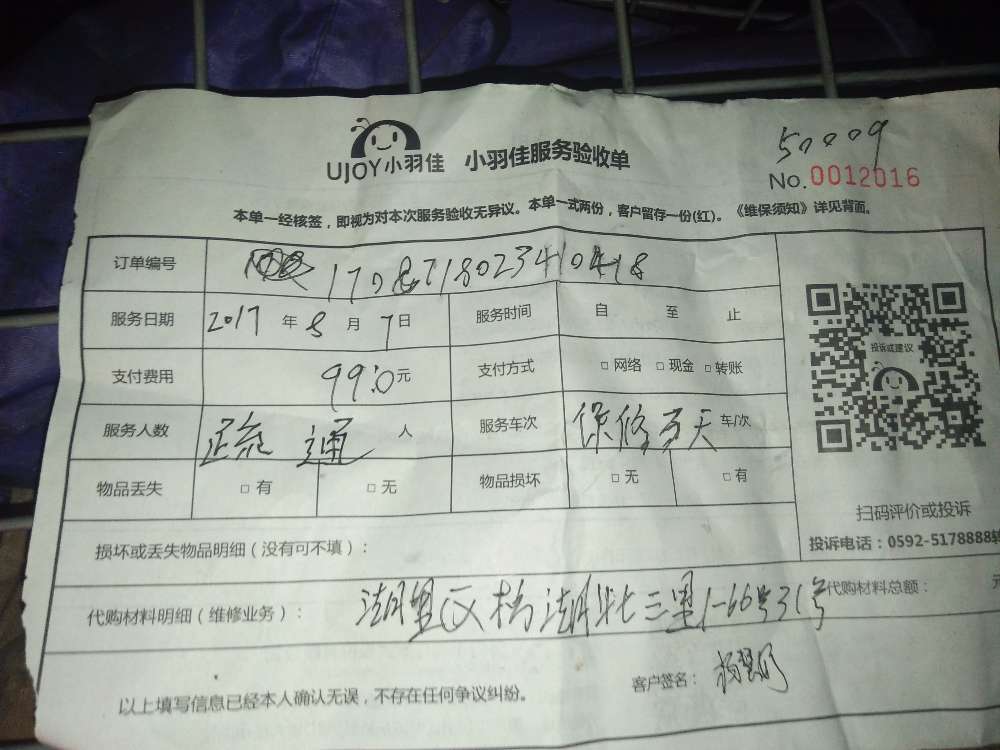 50009
UJOY小羽佳 小羽佳服务验收单
No.0012016
本单一经核签，即视为对本次服务验收无异议。本单一式两份，客户留存一份(红)。《维保须知》详见背面。
订单编号
服务日期 2017 年 8 月 7 日 服务时间 自 至 止
投诉或建议
支付费用 99.0 元 支付方式 □ 网络 □ 现金 □ 转账
服务人数 通 人 服务车次 保修 天 车/次
物品丢失 □ 有 □ 无 物品损坏 □ 无 □ 有
扫码评价或投诉
损坏或丢失物品明细（没有可不填）：
投诉电话：0592-5178888转
代购材料明细（维修业务）： 湖里区 湖 三里 代购材料总额： 元
以上填写信息已经本人确认无误，不存在任何争议纠纷。 客户签名： 杨